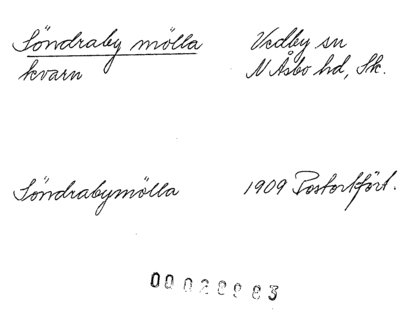 Söndraby mölla
kvarn
Vedby sn
N Åsbo hd, Sk.
Söndrabymölla
1909 Postortsfört.